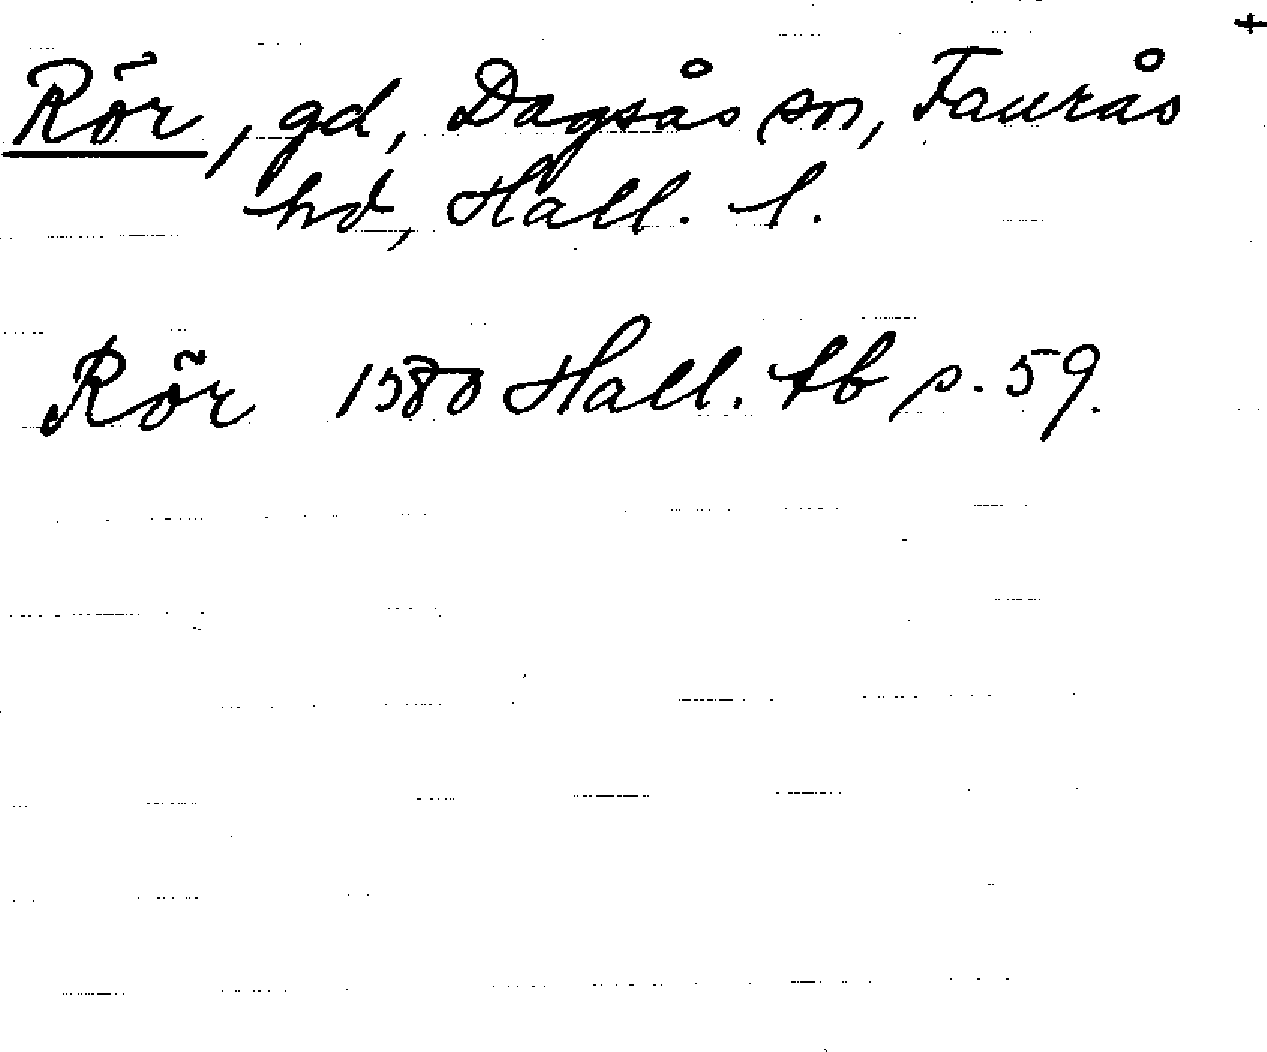 +
Rör, gd, Dagsås sn, Faurås
hd, Hall. l.
Rör 1580 Hall. tb s. 59.